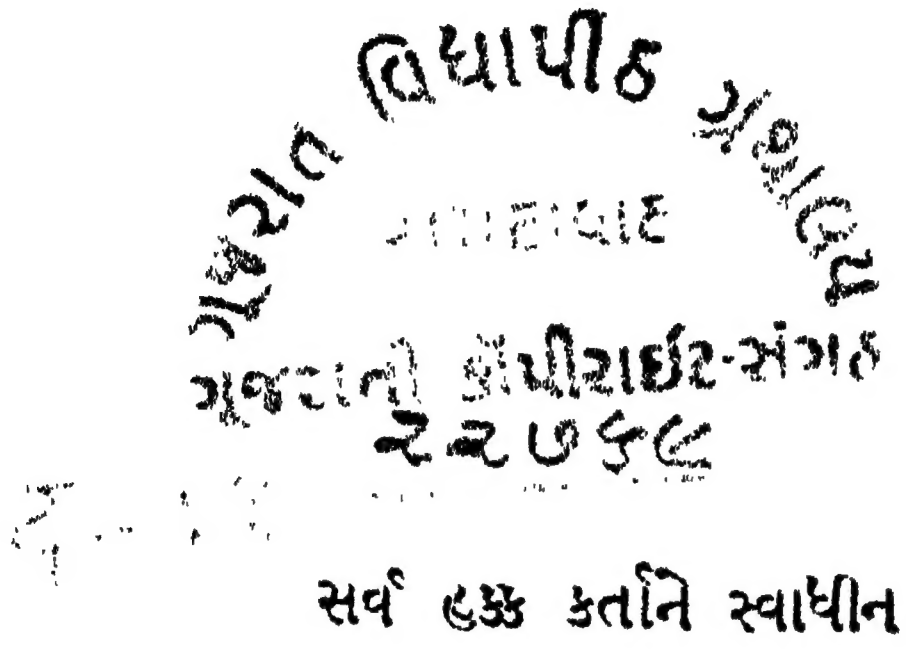 ગૂજરાત વિદ્યાપીઠ ગ્રંથાલય
ગૂજરાતી કૉપીરાઈટ-સંગ્રહ
૨૨૭૬૯
સર્વ હક્ક કર્તાને સ્વાધીન